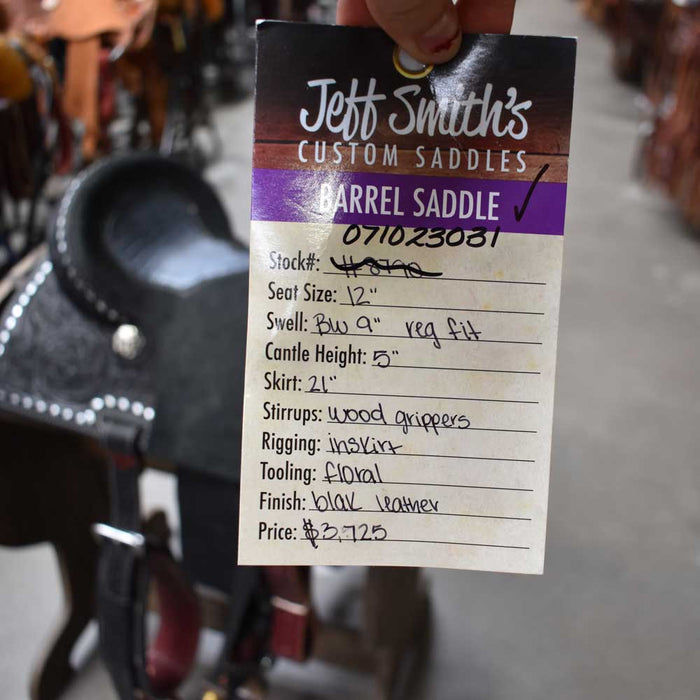 Jeff Smith's
CUSTOM SADDLES
BARREL SADDLE ✓
071023031
Stock#: #8790
Seat Size: 12"
Swell: BW 9" reg fit
Cantle Height: 5"
Skirt: 21"
Stirrups: wood grippers
Rigging: inskirt
Tooling: floral
Finish: blak leather
Price: $3,725